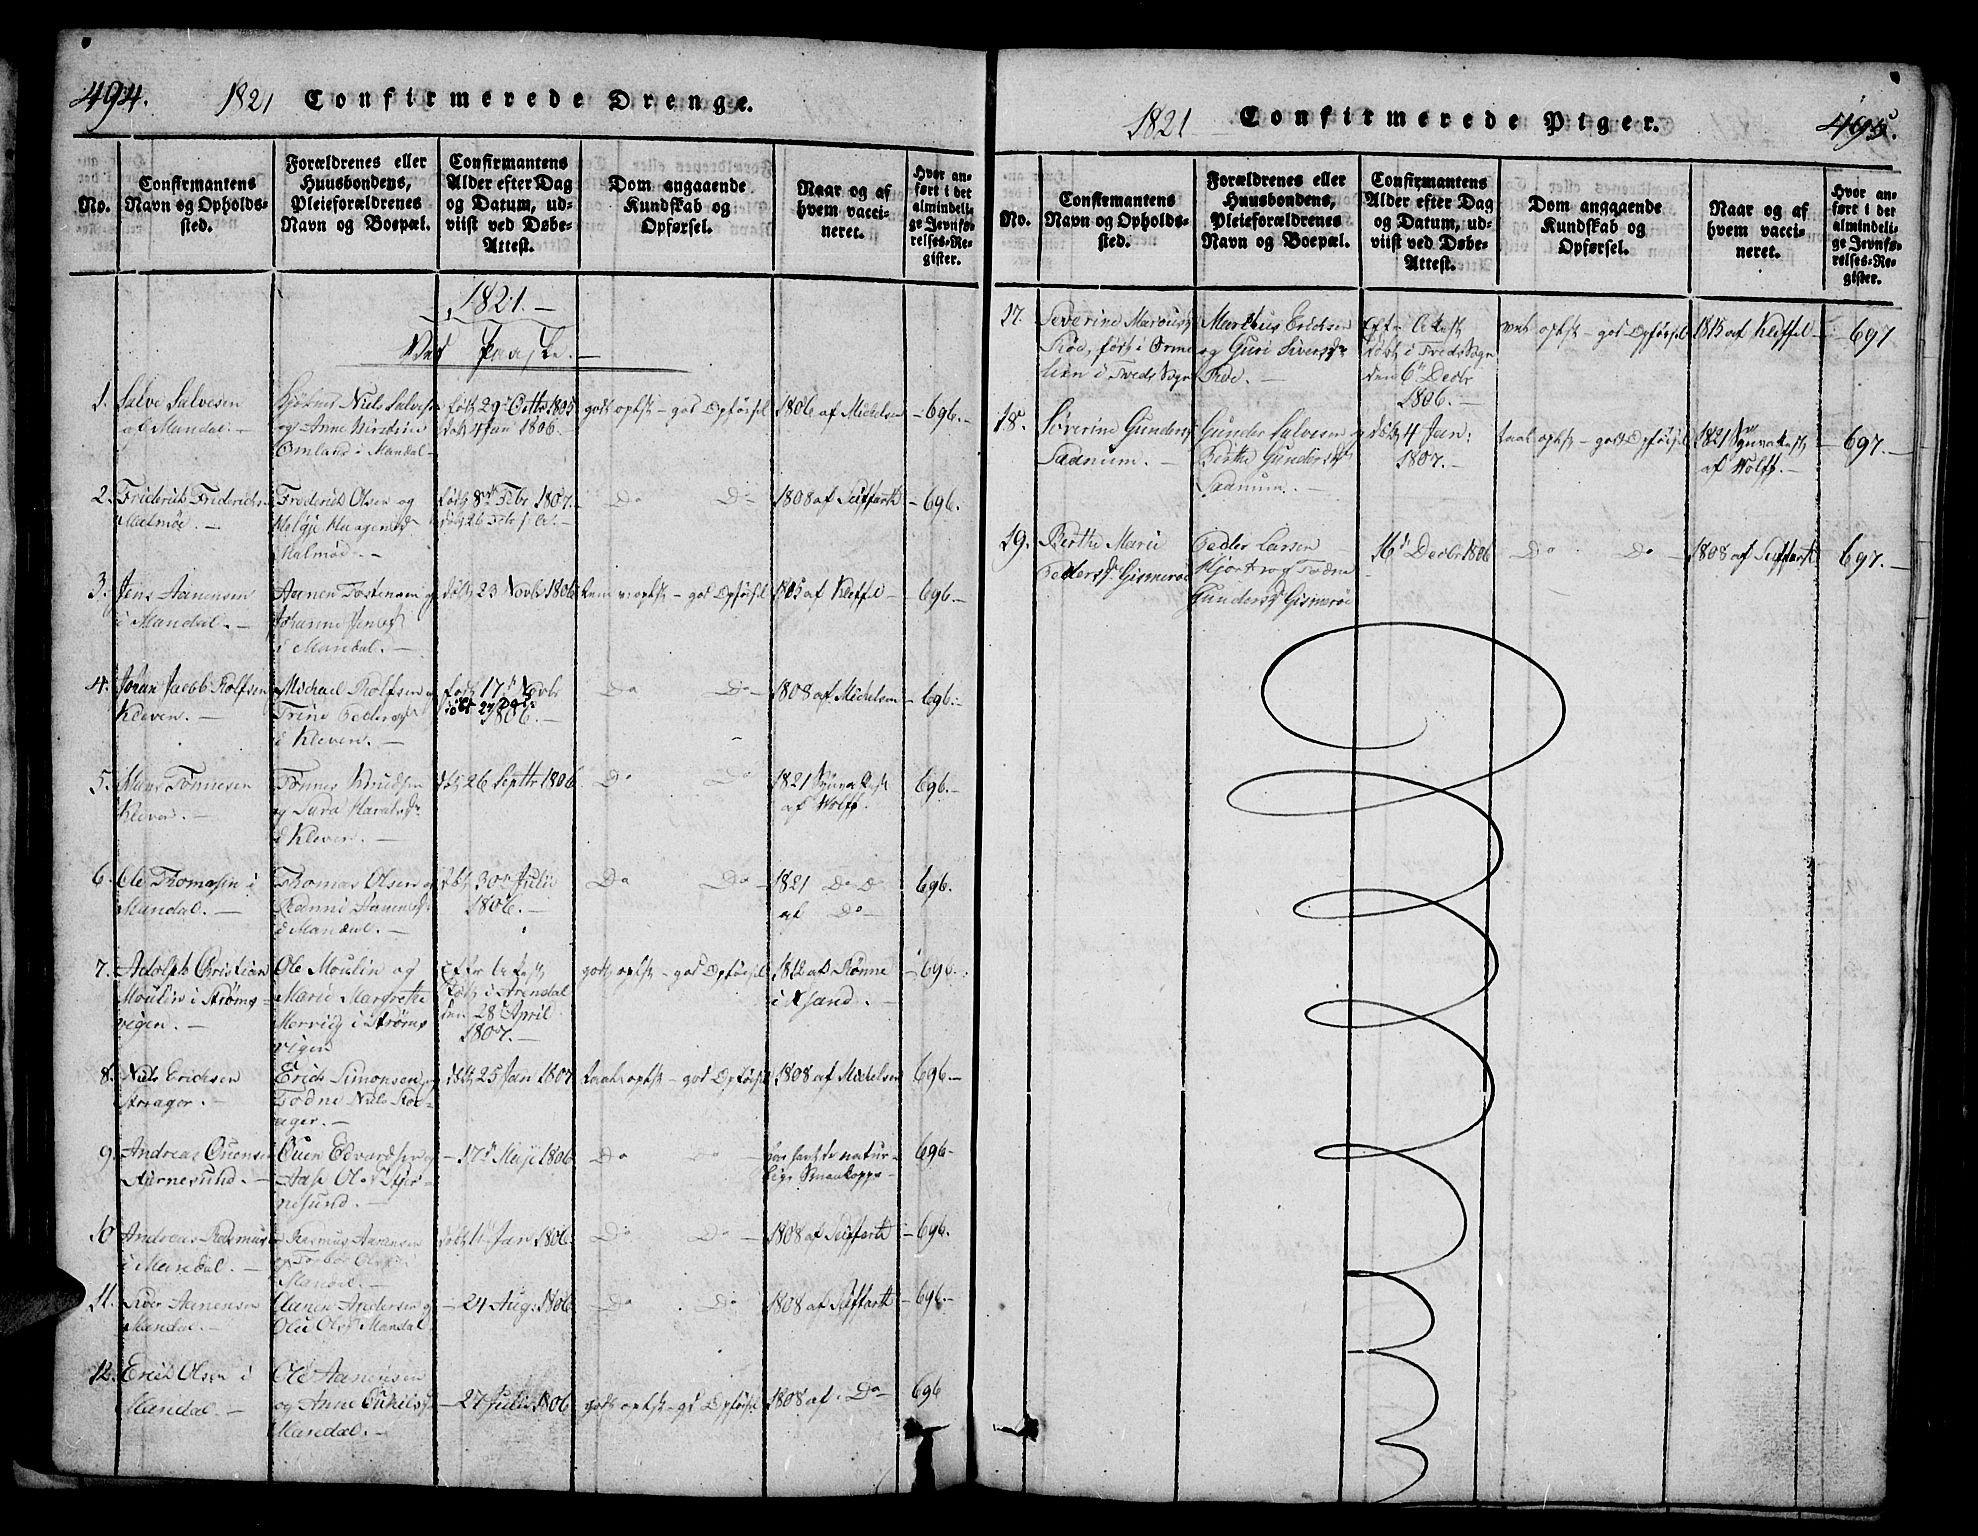 494.
1821 Confirmerede Drenge.
No.
Confirmantens
Navn og Opholds-
sted.
Forældrenes eller
Huusbondens,
Pleieforældrenes
Navn og Boepæl.
Confirmantens
Alder efter Dag
og Datum, ud-
viist ved Døbe-
Attest.
Dom angaaende
Kundskab og
Opførsel.
Naar og af
hvem vacci-
neret.
Hvor an-
ført i det
almindeli-
ge Jevnfø-
relses-Re-
gister.
1821.
Ved Paaske.
1.
Salve Salvesen
af Mandal.
Niels Salves
og Anne Kirstine
Omland i Mandal
født 29 Octb 1805
døbt 4 Jan 1806.
godt oplyst - god Opførsel
1806 af Michelsen
696.
2.
Friderich Friderichs
Malmøe.
Frederich Olsen og
Helgje Haagensd
Malmøe.
født 8de Febr 1807.
døbt 26 Febr
Do Do
1808 af Seiffarth
696.
3.
Jens Aanensen
i Mandal.
Aanen Tostensen og
Johanne Jensd
i Mandal.
døbt 23 Novb 1806
oplyst - god Opførsel
1805 af Kleffel
696.
4.
Johan Jacob Rolfsen
Kleven.
Michael Rolfsen og
Trine Pedersd
i Kleven.
født 17 Novbr
døbt 27 Dec
1806.
Do Do
1808 af Michelsen
696.
5.
Tønnesen
Kleven.
Tønnes Knudsen
og Sara Haralsd
i Kleven.
døbt 26 Septbr 1806
Do Do
1821
af Wolff.
696.
6.
Ole Thomesen i
Mandal.
Thomas Olsen og
Aanensd
i Mandal.
døbt 30 Julii
1806.
Do Do
1821 Do Do
af Do
696.
7.
Adolph Christian
Moulin i Strøms-
vigen.
Ole Moulin og
Marie Margrethe
i Strøms
vigen
Efter Attest
født i Arendal
den 28 April
1807.
godt oplyst - god Opførsel
1812 af Rønne
i Xsand.
696.
8.
Niels Erichsen
Erich Simonsen og
Todne Niels
ager.
døbt 25 Jan 1807
taal. oplyst - god Opførsel
1808 af Michelsen
696.
9.
Andreas Ouensen
Stiernesund.
Ouen Edvardsen og
Aase Olsd Stier-
nesund.
17 Maji 1806
Do Do
har havt de natur-
lige Smaakopper
696
10
Andreas Rasmus
i Mandal.
Rasmus Aanensen
og Torbor Olsd
Mandal.
døbt 11 Jan 1806.
Do Do
1808 af Seiffarth
696.
11.
Siver Aanensen
Mandal.
Aanen Andersen og
Olu Olsd Mandal
24 Aug: 1806
Do Do
1808 af Seiffarth
696.
12.
Erich Olsen i
Mandal.
Ole Aanensen
og Anne
Mandal.
27 Julii 1806
godt oplyst - god Opførsel
1808 af Do
696
1821 Confirmerede Piger.
495.
No.
Confirmantens
Navn og Opholds-
sted.
Forældrenes eller
Huusbondens,
Pleieforældrenes
Navn og Boepæl.
Confirmantens
Alder efter Dag
og Datum, ud-
viist ved Døbe-
Attest.
Dom angaaende
Kundskab og
Opførsel.
Naar og af
hvem vacci-
neret.
Hvor an-
ført i det
almindeli-
ge Jevnfø-
relses-Re-
gister.
17.
Severine Marcusd
Risøe, født i Orme
lien i Tveds Sogn
Marchus Erichsen
og Guri Siversd
Risøe.
Efter Attest
døbt i Tveds Sogn
den 6 Decbr
1806.
vel oplyst - god Opførsel
1815 af Kleffel
697
18.
Søverine Gundersd
Sadnum.
Gunder Salvesen og
Berthe Gundersd
Sadnum.
døbt 4 Jan:
1807.
taal. oplyst - god Opførsel
1821
af Wolff.
697.
19.
Berthe Marie
Pedersd. Gismerøe
Peder Larsen
Hjort og Todne
Gundersd Gismerøe
16 Decbr 1806
Do Do
1808 af Seiffarth
697.